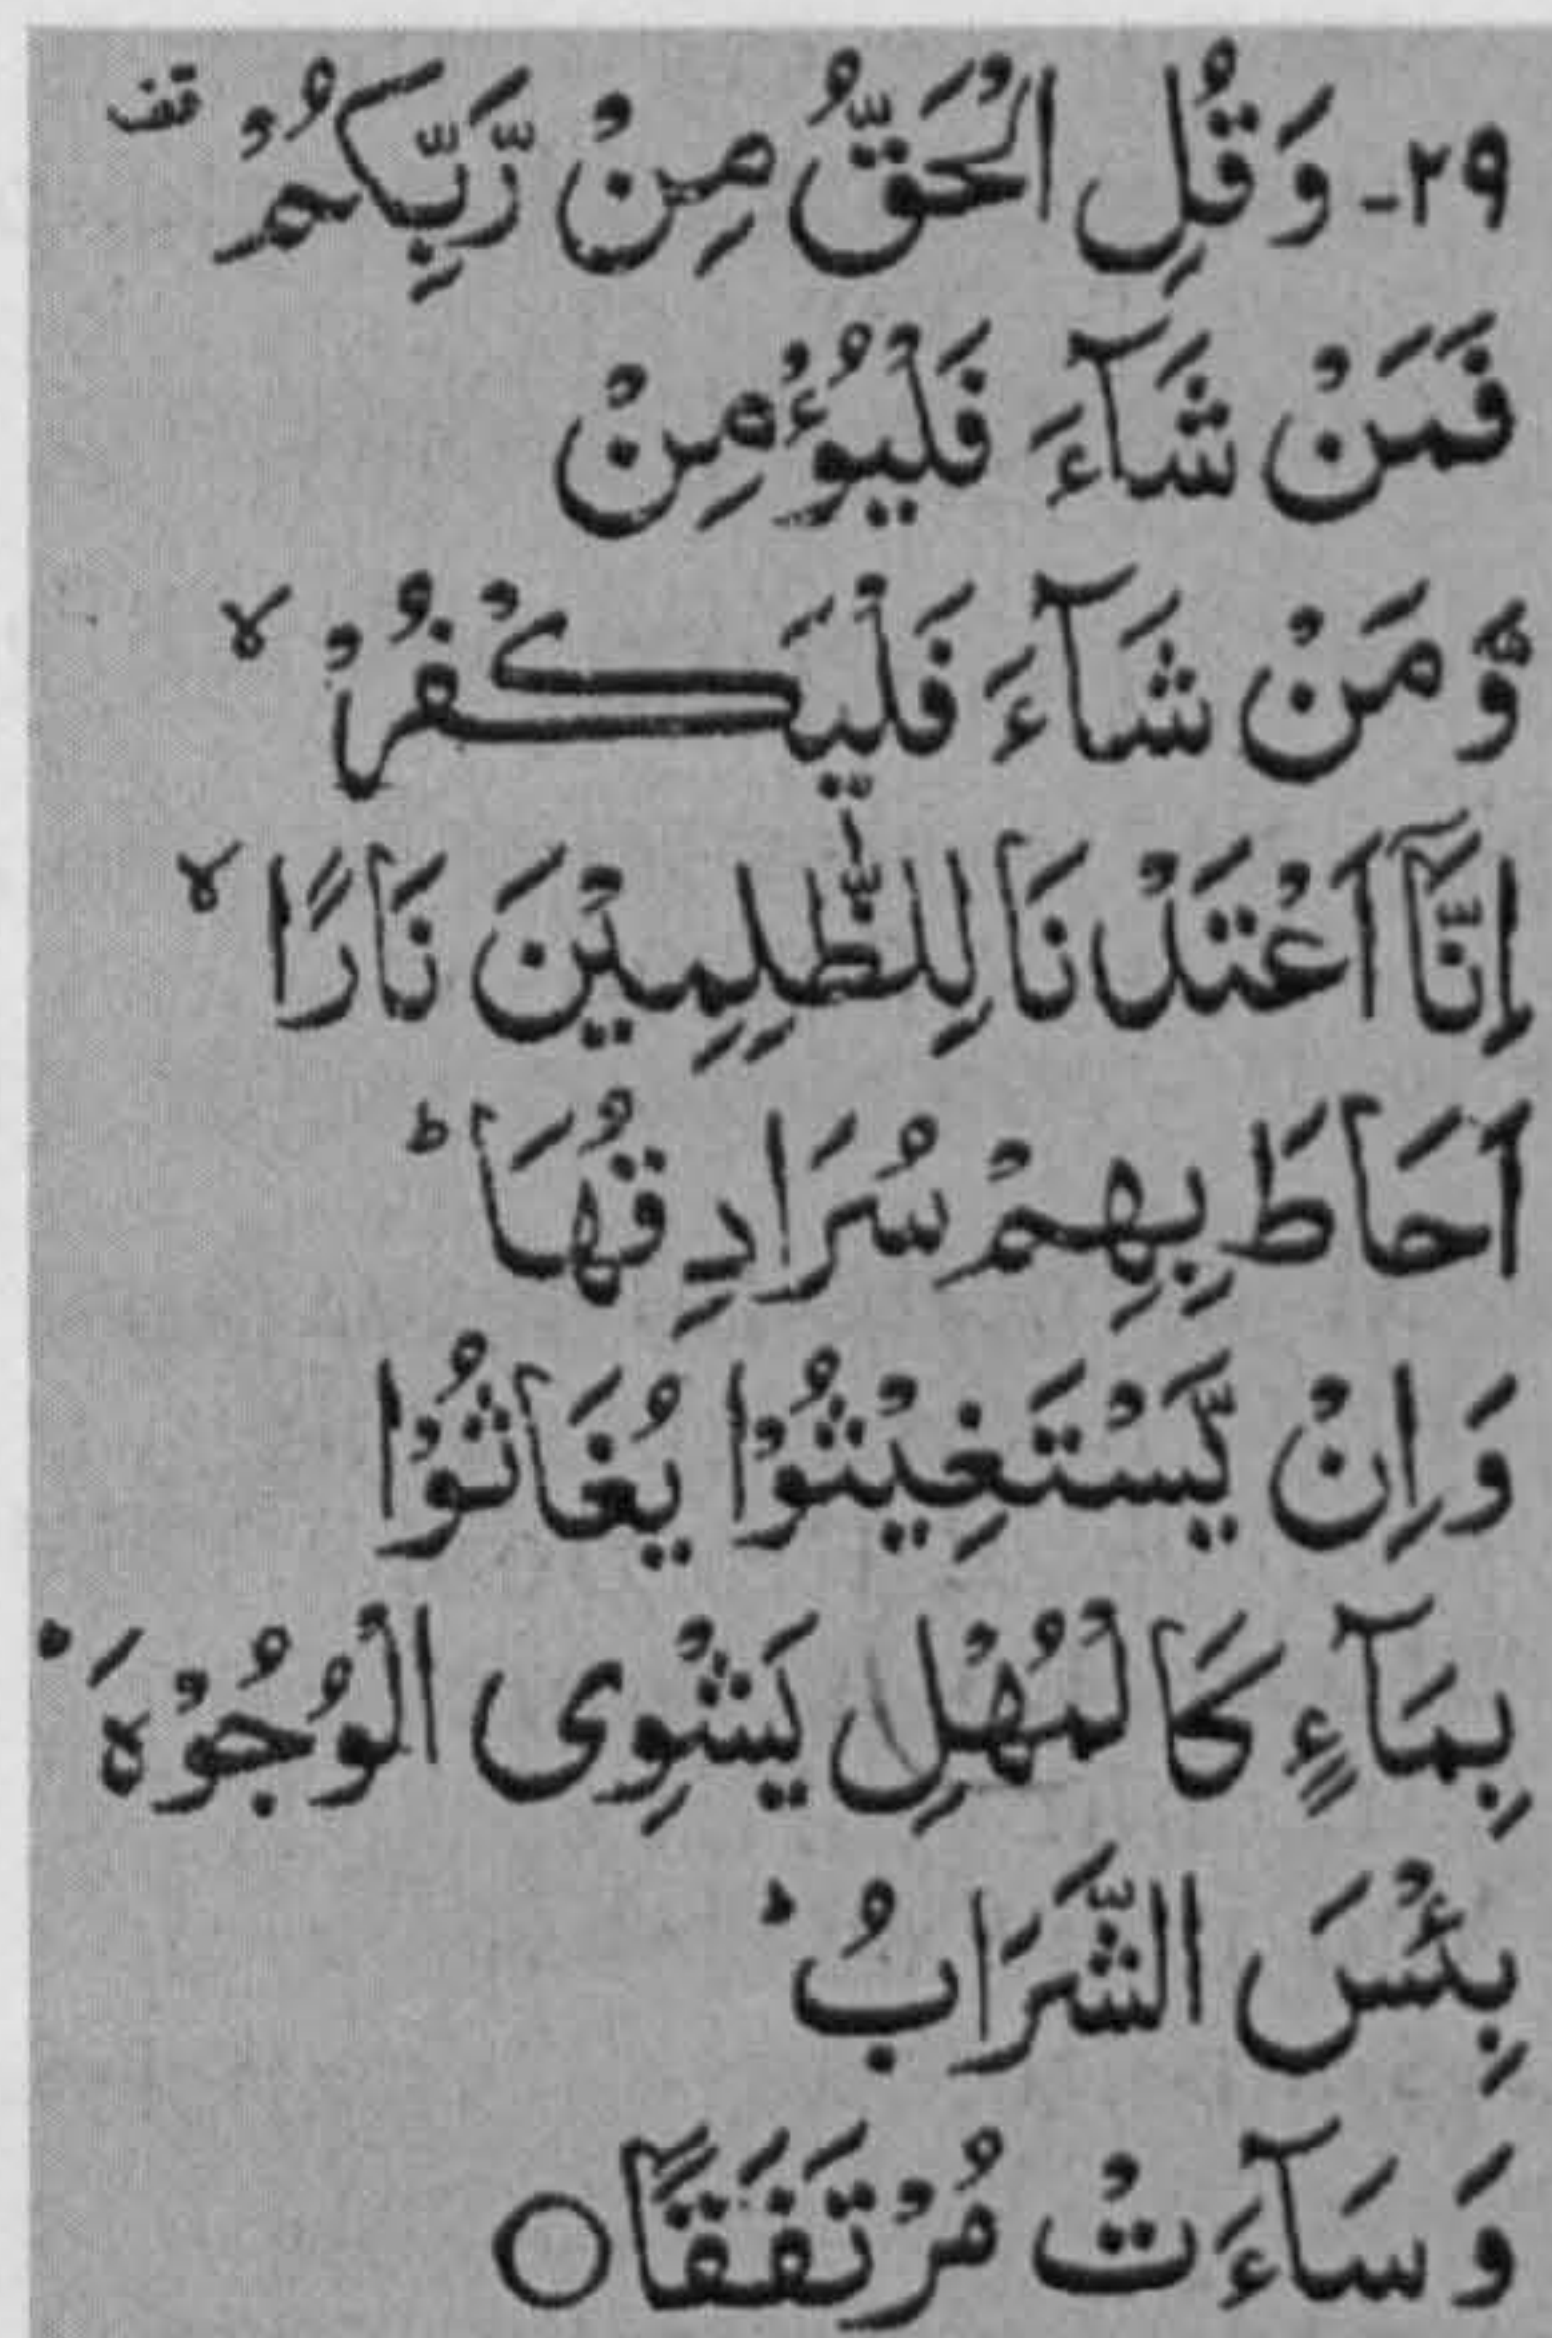 ۲۹- وَقُلِ الْحَقُّ مِنْ رَّبِّكُمْ قف
فَمَنْ شَآءَ فَلْيُؤْمِنْ
وَّمَنْ شَآءَ فَلْيَكْفُرْ ۙ
اِنَّآ اَعْتَدْنَا لِلظّٰلِمِيْنَ نَارًا ۙ
اَحَاطَ بِهِمْ سُرَادِقُهَا ؕ
وَاِنْ يَّسْتَغِيْثُوْا يُغَاثُوْا
بِمَآءٍ كَالْمُهْلِ يَشْوِى الْوُجُوْهَ ؕ
بِئْسَ الشَّرَابُ ؕ
وَسَآءَتْ مُرْتَفَقًا ○